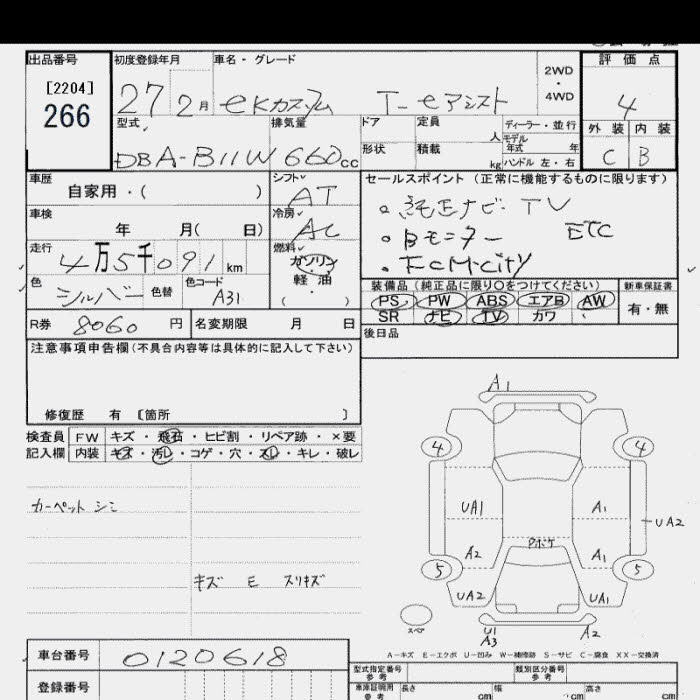 出品番号
[2204]
266
初度登録年月
27年 2月
車名・グレード
eKカスタム T-eアシスト
2WD
・
4WD
評価点
4
型式
DBA-B11W
排気量
660cc
ドア
定員
人
ディーラー・並行
モデル
年式 年
形状
積載
kg
ハンドル 左・右
外装 内装
C B
車歴
自家用・( )
シフト
AT
車検
年 月( 日)
冷房
AC
走行
4万5千091km
燃料
ガソリン
・
軽油
( )
色
シルバー
色替
色コード
A31
セールスポイント (正常に機能するものに限ります)
。純正ナビ・TV
・Bモニター ETC
・FCM-City
装備品 (純正品に限り○をつけてください)
PS PW ABS エアB AW
SR ナビ TV カワ
新車保証書
有・無
R券
8060円
名変期限 月 日
後日品
注意事項申告欄(不具合内容等は具体的に記入して下さい)
修復歴 有 〔箇所 〕
検査員
記入欄
FW キズ・飛石・ヒビ割・リペア跡・×要
内装 キズ・汚レ・コゲ・穴・スレ・キレ・破レ
カーペット シミ
キズ E スリキズ
A1
4 4
UA1 A1
UA2
Pボケ
A2 A1
5 5
UA2 UA2
スペア
U1
A3
A2
A-キズ E-エクボ U-凹み W-補修跡 S-サビ C-腐食 XX-交換済
車台番号
0120618
登録番号
型式指定番号
参考
類別区分番号
参考
車庫証明用
参考
長さ cm
幅 cm
高さ cm